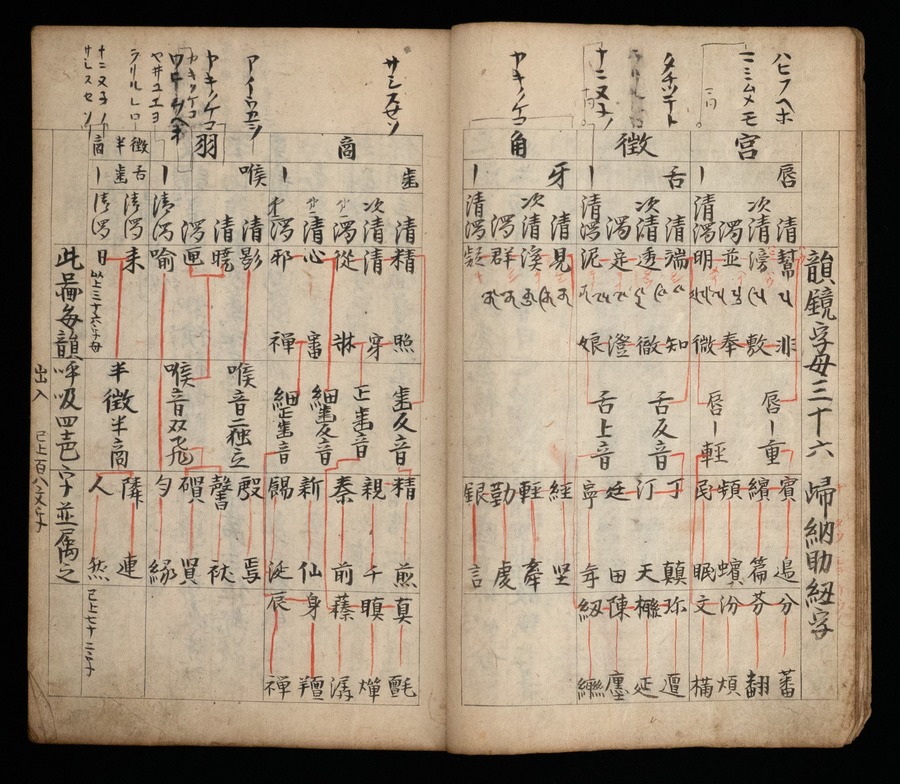 韻鏡字母三十六 歸納助紐字
ハヒフヘホ
ミムメモ
タチツテト
ナニヌネノ
カキクケコ
宮
徴
角
唇
舌
牙
清 次清 濁 清濁
清 次清 濁 清濁
清 次清 濁 清濁
幫 滂 並 明
端 透 定 泥
見 溪 群 疑
非 敷 奉 微
知 徹 澄 娘
唇ー重
唇ー輕
舌反音
舌上音
賓 繽 頻 民
丁 汀 廷 寧
經 輕 勤 銀
邊 篇 蠙 眠
顛 天 田 年
堅 牽 虔 言
分 芬 汾 文
珍 獮 陳 紉
蕃 翻 煩 樠
邅 延 廛
サシスセソ
アイウエヲ
ヤヰユエヨ
ラリルレロ
ナニヌネノ
サシスセソ
商
羽
徴半商
齒
喉
舌齒
清 次清 濁 清 濁
清 清 濁 清濁
清濁 清濁
精 清 從 心 邪
影 曉 匣 喻
來 日
照 穿 牀 審 禪
以上三十六字母
齒反音
正齒音
細齒反音
細正齒音
喉音二独立
喉音双飛
半徴半商
精 親 秦 新 錫
殷 馨 礥 勻
隣 人
煎 千 前 仙 涎
焉 祆 賢 縁
連 然
真 瞋 蓁 身 辰
氈 燀 潺 羶 禪
已上七十二字
此品毎韻呼吸四声字並属之
出入
已上百八文字